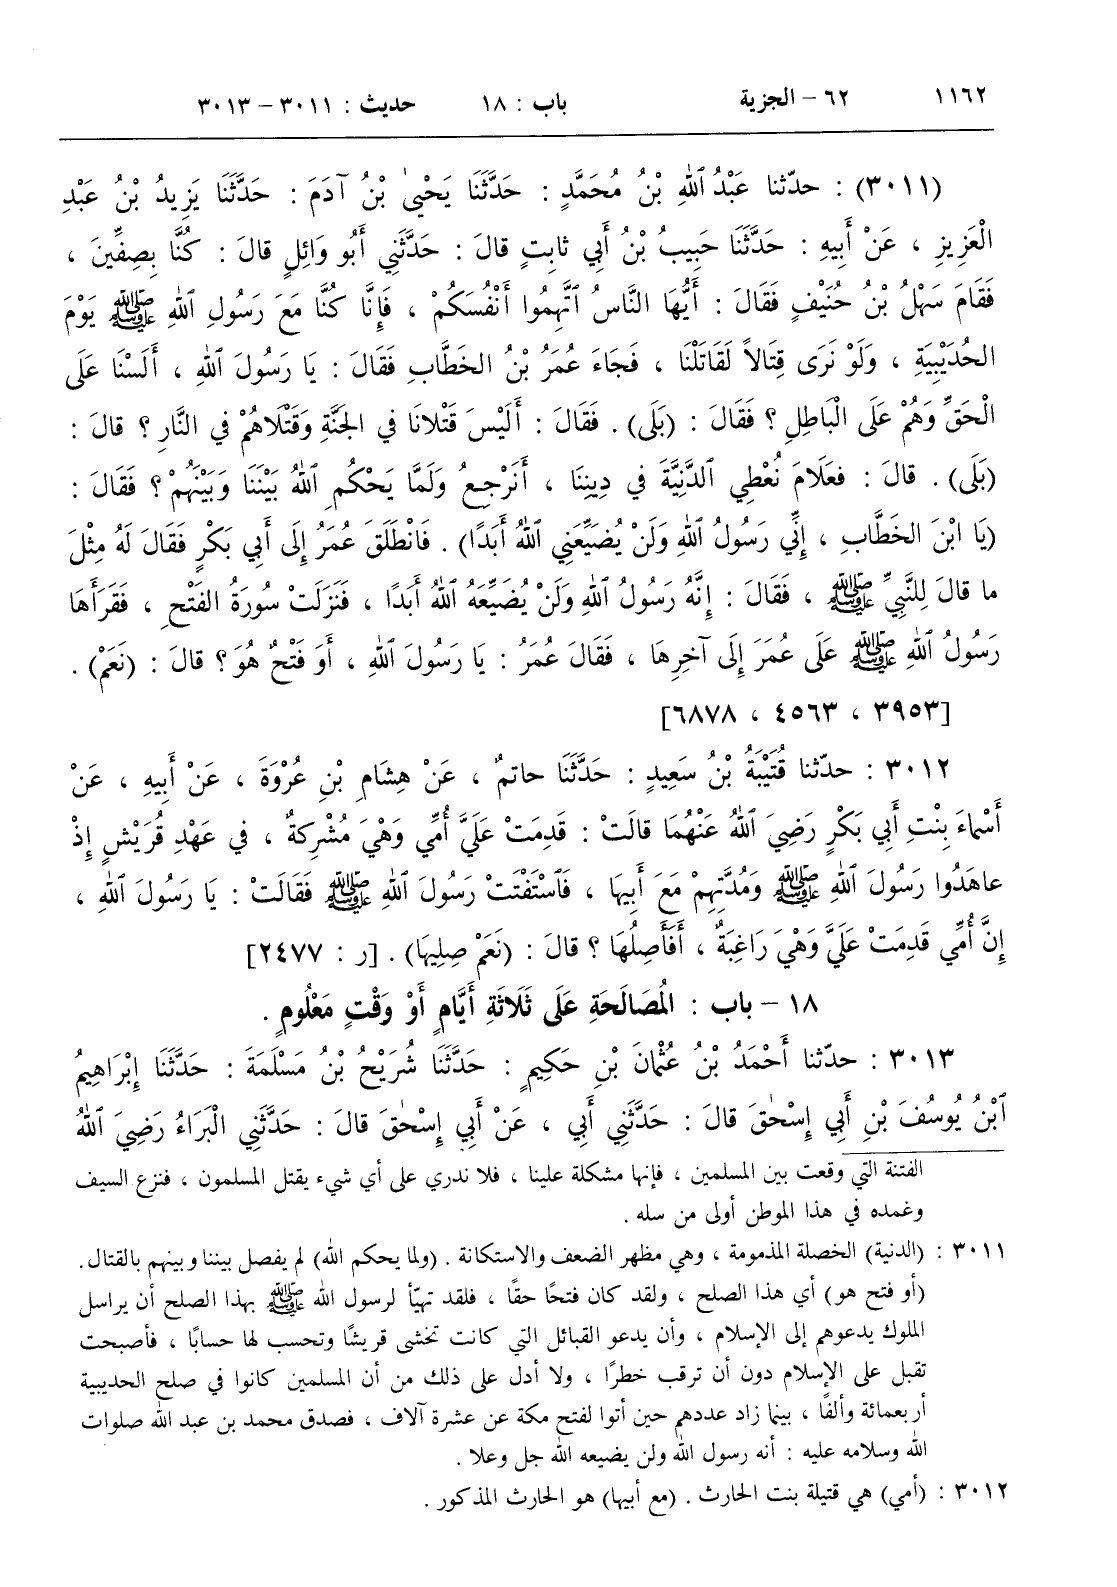 ١١٦٢ ٦٢ – الجزية باب : ١٨ حديث : ٣٠١١ – ٣٠١٣
(٣٠١١) : حدّثنا عَبْدُ ٱللهِ بْنُ مُحَمَّدٍ : حَدَّثَنَا يَحْيىٰ بْنُ آدَمَ : حَدَّثَنَا يَزِيدُ بْنُ عَبْدِ
الْعَزِيزِ ، عَنْ أَبِيهِ : حَدَّثَنَا حَبِيبُ بْنُ أَبِي ثابِتٍ قالَ : حَدَّثَنِي أَبُو وَائِلٍ قالَ : كُنَّا بِصِفِّينَ ،
فَقَامَ سَهْلُ بْنُ حُنَيْفٍ فَقَالَ : أَيُّهَا النَّاسُ ٱتَّهِمُوا أَنْفُسَكُمْ ، فَإِنَّا كُنَّا مَعَ رَسُولِ ٱللهِ ﷺ يَوْمَ
الحُدَيْبِيَةِ ، وَلَوْ نَرَى قِتَالاً لَقَاتَلْنَا ، فَجَاءَ عُمَرُ بْنُ الخَطَّابِ فَقَالَ : يَا رَسُولَ ٱللهِ ، أَلَسْنَا عَلَى
الْحَقِّ وَهُمْ عَلَى الْبَاطِلِ ؟ فَقَالَ : (بَلَى) . فَقَالَ : أَلَيْسَ قَتْلانَا في الجَنَّةِ وَقَتْلَاهُمْ في النَّارِ ؟ قالَ :
(بَلَى) . قالَ : فَعَلَامَ نُعْطِي ٱلدَّنِيَّةَ في دِينِنَا ، أَنَرْجِعُ وَلَمَّا يَحْكُمِ ٱللهُ بَيْنَنَا وَبَيْنَهُمْ ؟ فَقَالَ :
(يَا ابْنَ الخَطَّابِ ، إِنِّي رَسُولُ ٱللهِ وَلَنْ يُضَيِّعَنِي ٱللهُ أَبَدًا) . فَانْطَلَقَ عُمَرُ إِلَى أَبِي بَكْرٍ فَقَالَ لَهُ مِثْلَ
ما قالَ لِلنَّبِيِّ ﷺ ، فَقَالَ : إِنَّهُ رَسُولُ ٱللهِ وَلَنْ يُضَيِّعَهُ ٱللهُ أَبَدًا ، فَنَزَلَتْ سُورَةُ الفَتْحِ ، فَقَرَأَهَا
رَسُولُ ٱللهِ ﷺ عَلَى عُمَرَ إِلَى آخِرِهَا ، فَقَالَ عُمَرُ : يَا رَسُولَ ٱللهِ ، أَوَ فَتْحٌ هُوَ ؟ قالَ : (نَعَمْ) .
[٣٩٥٣ ، ٤٥٦٣ ، ٦٨٧٨]
٣٠١٢ : حدّثنا قُتَيْبَةُ بْنُ سَعِيدٍ : حَدَّثَنَا حاتمٌ ، عَنْ هِشَامِ بْنِ عُرْوَةَ ، عَنْ أَبِيهِ ، عَنْ
أَسْمَاءَ بِنْتِ أَبِي بَكْرٍ رَضِيَ ٱللهُ عَنْهُمَا قالَتْ : قَدِمَتْ عَلَيَّ أُمِّي وَهْيَ مُشْرِكَةٌ ، في عَهْدِ قُرَيْشٍ إِذْ
عاهَدُوا رَسُولَ ٱللهِ ﷺ وَمُدَّتِهِمْ مَعَ أَبِيهَا ، فَٱسْتَفْتَتْ رَسُولَ ٱللهِ ﷺ فَقَالَتْ : يَا رَسُولَ ٱللهِ ،
إِنَّ أُمِّي قَدِمَتْ عَلَيَّ وَهْيَ رَاغِبَةٌ ، أَفَأَصِلُهَا ؟ قالَ : (نَعَمْ صِلِيهَا) . [ر : ٢٤٧٧]
١٨ – باب : المُصَالَحَةِ عَلَى ثَلَاثَةِ أَيَّامٍ أَوْ وَقْتٍ مَعْلُومٍ .
٣٠١٣ : حدّثنا أَحْمَدُ بْنُ عُثْمَانَ بْنِ حَكِيمٍ : حَدَّثَنَا شُرَيْحُ بْنُ مَسْلَمَةَ : حَدَّثَنَا إِبْرَاهِيمُ
ٱبْنُ يُوسُفَ بْنِ أَبِي إِسْحٰقَ قالَ : حَدَّثَنِي أَبِي ، عَنْ أَبِي إِسْحٰقَ قالَ : حَدَّثَنِي الْبَرَاءُ رَضِيَ ٱللهُ
الفتنة التي وقعت بين المسلمين ، فإنها مشكلة علينا ، فلا ندري على أي شيء يقتل المسلمون ، فنزع السيف
وغمده في هذا الموطن أولى من سله .
٣٠١١ : (الدنية) الخصلة المذمومة ، وهي مظهر الضعف والاستكانة . (ولما يحكم الله) لم يفصل بيننا وبينهم بالقتال .
(أو فتح هو) أي هذا الصلح ، ولقد كان فتحًا حقًا ، فلقد تهيّأ لرسول الله ﷺ بهذا الصلح أن يراسل
الملوك يدعوهم إلى الإسلام ، وأن يدعو القبائل التي كانت تخشى قريشًا وتحسب لها حسابًا ، فأصبحت
تقبل على الإسلام دون أن ترقب خطرًا ، ولا أدل على ذلك من أن المسلمين كانوا في صلح الحديبية
أربعمائة وألفًا ، بينما زاد عددهم حين أتوا لفتح مكة عن عشرة آلاف ، فصدق محمد بن عبد الله صلوات
الله وسلامه عليه : أنه رسول الله ولن يضيعه الله جل وعلا .
٣٠١٢ : (أمي) هي قتيلة بنت الحارث . (مع أبيها) هو الحارث المذكور .